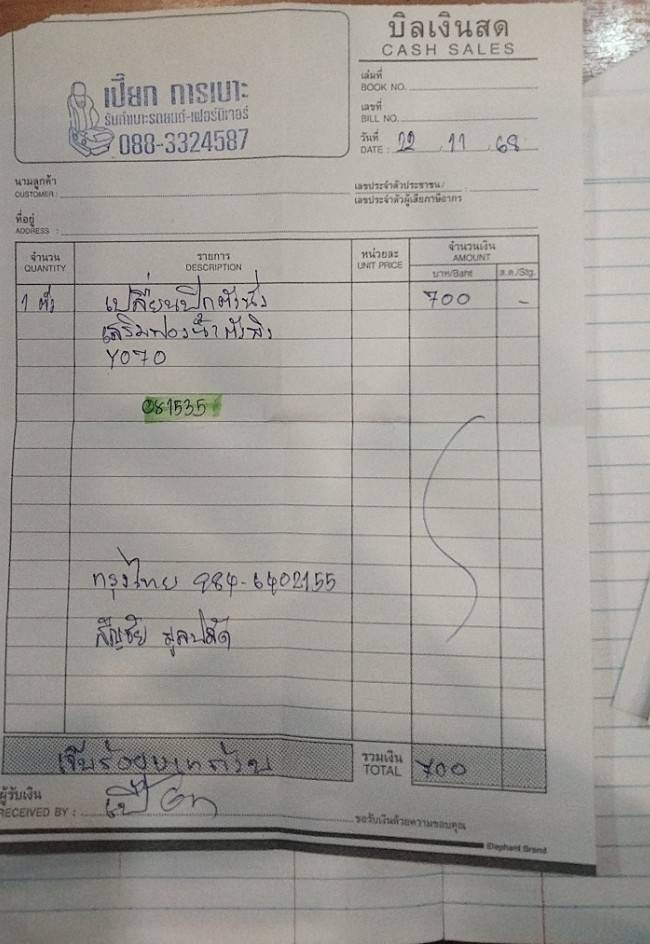 บิลเงินสด
CASH SALES
เปี๊ยก การเบาะ
รับทำเบาะรถยนต์-เฟอร์นิเจอร์
088-3324587
เล่มที่
BOOK NO.
เลขที่
BILL NO.
วันที่
DATE : 22 11 68
นามลูกค้า
CUSTOMER :
เลขประจำตัวประชาชน/
เลขประจำตัวผู้เสียภาษีอากร :
ที่อยู่
ADDRESS :
จำนวน รายการ หน่วยละ จำนวนเงิน
QUANTITY DESCRIPTION UNIT PRICE AMOUNT
บาท/Baht ส.ต./Stg.
1 ตัว เปลี่ยนปีกตัวนั่ง 700 -
เสริมฟองน้ำตัวพิง
Y070
081535
กรุงไทย 984-6402155
สัญชัย
เจ็ดร้อยบาทถ้วน
รวมเงิน
TOTAL 700
ผู้รับเงิน
RECEIVED BY :
ขอรับเงินด้วยความขอบคุณ
Elephant Brand